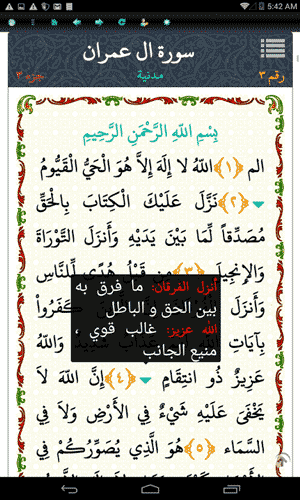 5:42 AM
سورة ال عمران
رقم ٣
مدنية
جزء ٣
بِسْمِ اللّهِ الرَّحْمَنِ الرَّحِيمِ
الم ﴿١﴾ اللّهُ لا إِلَهَ إِلاَّ هُوَ الْحَيُّ الْقَيُّومُ
﴿٢﴾ نَزَّلَ عَلَيْكَ الْكِتَابَ بِالْحَقِّ
مُصَدِّقاً لِّمَا بَيْنَ يَدَيْهِ وَأَنزَلَ التَّوْرَاةَ
وَالإِنجِيلَ ﴿٣﴾ مِن قَبْلُ هُدًى لِّلنَّاسِ
وَأَنزَلَ كَفَرُواْ
أنزل الفرقان: ما فرق به
بين الحق و الباطل
الله عزيز: غالب قوي ،
منيع الجانب
بِآيَاتِ شَدِيدٌ وَاللّهُ
عَزِيزٌ ذُو انتِقَامٍ ﴿٤﴾ إِنَّ اللّهَ لاَ
يَخْفَىَ عَلَيْهِ شَيْءٌ فِي الأَرْضِ وَلاَ فِي
السَّمَاء ﴿٥﴾ هُوَ الَّذِي يُصَوِّرُكُمْ فِي